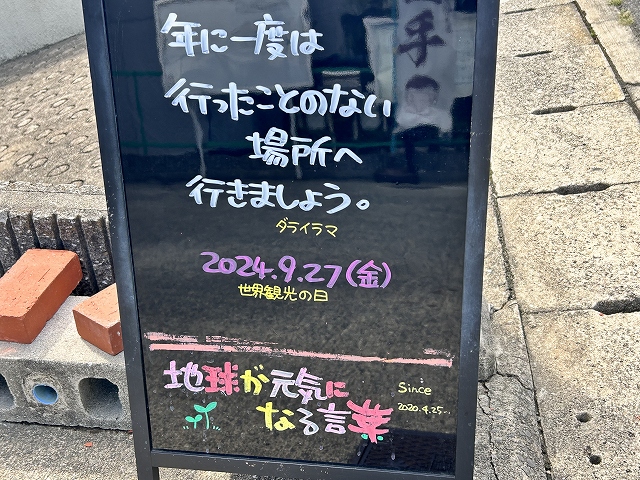 年に一度は
行ったことのない
場所へ
行きましょう。
ダライラマ
2024.9.27(金)
世界観光の日
地球が元気に
なる言葉
Since
2020.4.25..